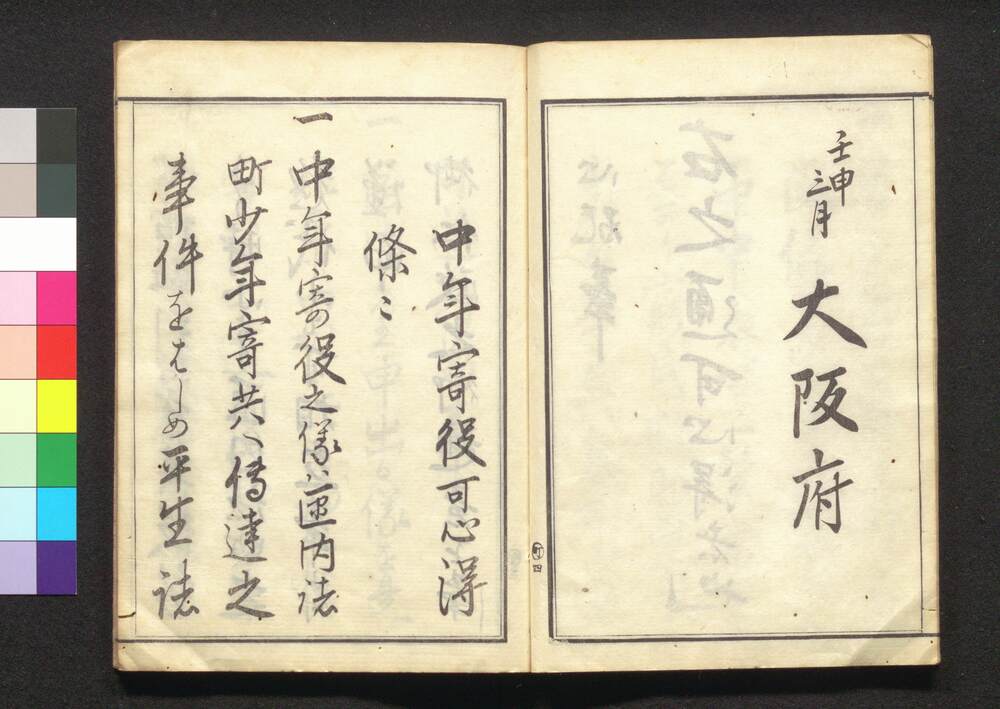 壬申
三月
大阪府
町四
中年寄役可心得
條々
一中年寄役之儀ハ区内諸
町少年寄共へ傳達之
事件をはしめ平生諸